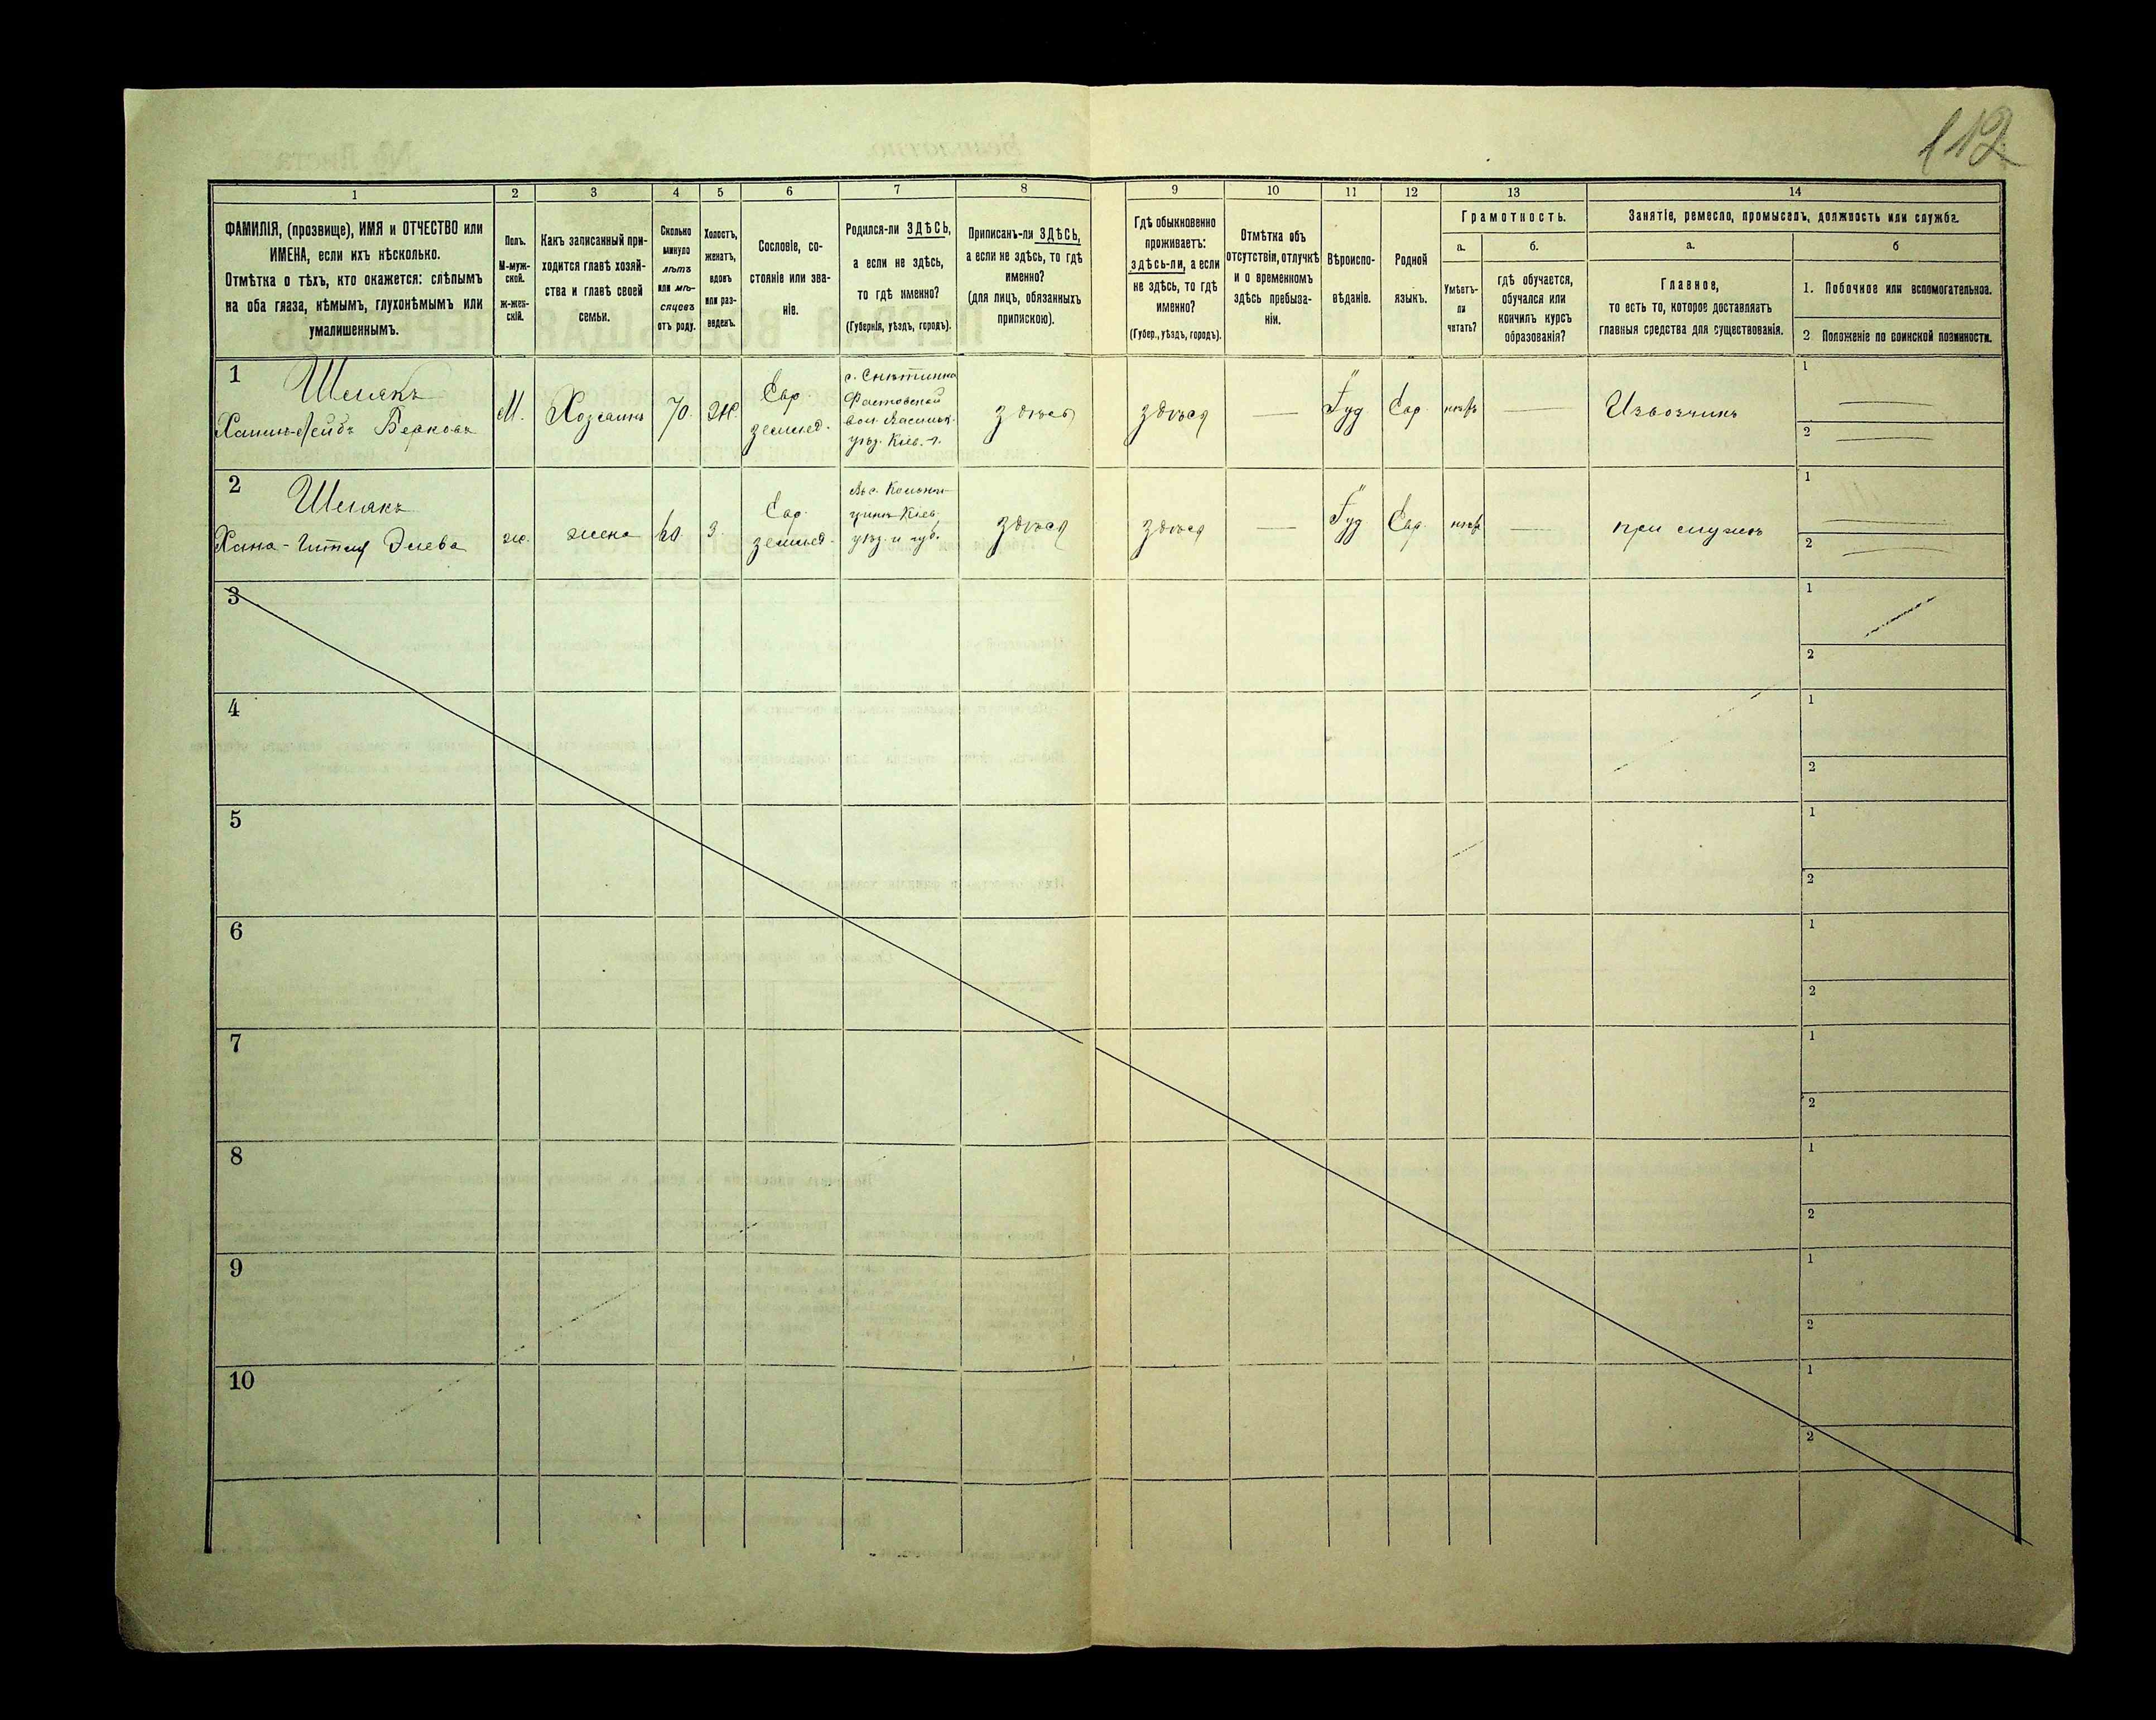 112
1
2
3
4
5
6
7
8
9
10
11
12
13
14
ФАМИЛІЯ, (прозвище), ИМЯ и ОТЧЕСТВО или
ИМЕНА, если ихъ нѣсколько.
Отмѣтка о тѣхъ, кто окажется: слѣпымъ
на оба глаза, нѣмымъ, глухонѣмымъ или
умалишеннымъ.
Полъ.
М-муж-
ской.
ж-жен-
скій.
Какъ записанный при-
ходится главѣ хозяй-
ства и главѣ своей
семьи.
Сколько
минуло
лѣтъ
или мѣ-
сяцевъ
отъ роду.
Холостъ,
женатъ,
вдовъ
или раз-
веденъ.
Сословіе, со-
стояніе или зва-
ніе.
Родился-ли ЗДѢСЬ,
а если не здѣсь,
то гдѣ именно?
(Губернія, уѣздъ, городъ).
Приписанъ-ли ЗДѢСЬ,
а если не здѣсь, то гдѣ
именно?
(для лицъ, обязанныхъ
припискою).
Гдѣ обыкновенно
проживаетъ:
здѣсь-ли, а если
не здѣсь, то гдѣ
именно?
(Губер., уѣздъ, городъ).
Отмѣтка объ
отсутствіи, отлучкѣ
и о временномъ
здѣсь пребыва-
ніи.
Вѣроиспо-
вѣданіе.
Родной
языкъ.
Грамотность.
а.
б.
Умѣетъ-
ли
читать?
гдѣ обучается,
обучался или
кончилъ курсъ
образованія?
Занятіе, ремесло, промыселъ, должность или служба.
а.
б
Главное,
то есть то, которое доставляетъ
главныя средства для существованія.
1. Побочное или вспомогательное.
2 Положеніе по воинской повинности.
1
Шмякъ
Лейбъ Берковъ
М.
Хозяинъ
70.
Ж.
Евр.
землед.
с. Снѣтинка
Фастовской
вол. Васильк.
уѣз. Кіев. г.
здѣсь
здѣся
—
Іуд
Евр.
—
Извозчикъ
1
2
2
Шмякъ
Хана-
ж.
жена
60.
з.
Евр.
землед.
Кіев.
уѣз. и губ.
здѣся
здѣся
—
Іуд
Евр.
—
при мужѣ
1
2
3
1
2
4
1
2
5
1
2
6
1
2
7
1
2
8
1
2
9
1
2
10
1
2